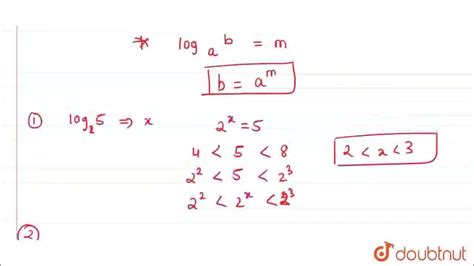 * logₐ b = m
b = aᵐ
① log₂5 ⇒ x 2ˣ = 5
4 < 5 < 8 2 < x < 3
2² < 5 < 2³
2² < 2ˣ < 2³
②
doubtnut